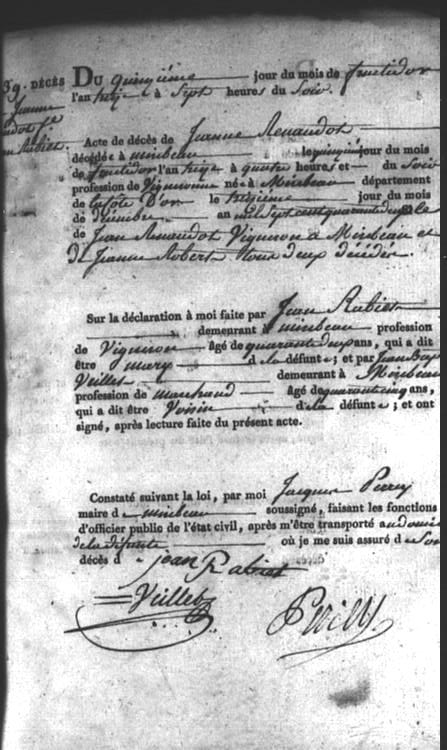 39. DÉCÈS
Jeanne
Rabiet.
DU quinzième jour du mois de fructidor
l'an treize à sept heures du Soir.
Acte de décès de Jeanne Renaudot
décédée à mirbeau le quinzième jour du mois
de fructidor l'an treize à quatre heures et du Soir
profession de Vigneronne née à Mirbeau département
de la Côte D'or le treizième jour du mois
de décembre an mil Sept cent quarante
de Jean Renaudot Vigneron à Mirbeau et
de Jeanne Robert tous deux décédés.
Sur la déclaration à moi faite par Jean Rabiet
demeurant à mirbeau profession
de Vigneron âgé de quarante deux ans, qui a dit
être mary d la défunte; et par Jean Bap
Veillet demeurant à Mirbeau
profession de marchand âgé de quarante cinq ans,
qui a dit être Voisin d'ela défunte; et ont
signé, après lecture faite du présent acte.
Constaté suivant la loi, par moi Jacques Perrey
maire d e mirbeau soussigné, faisant les fonctions
d'officier public de l'état civil, après m'être transporté au domi
de la défunte où je me suis assuré d e Son
décès d
jean Rabiet
Veillet